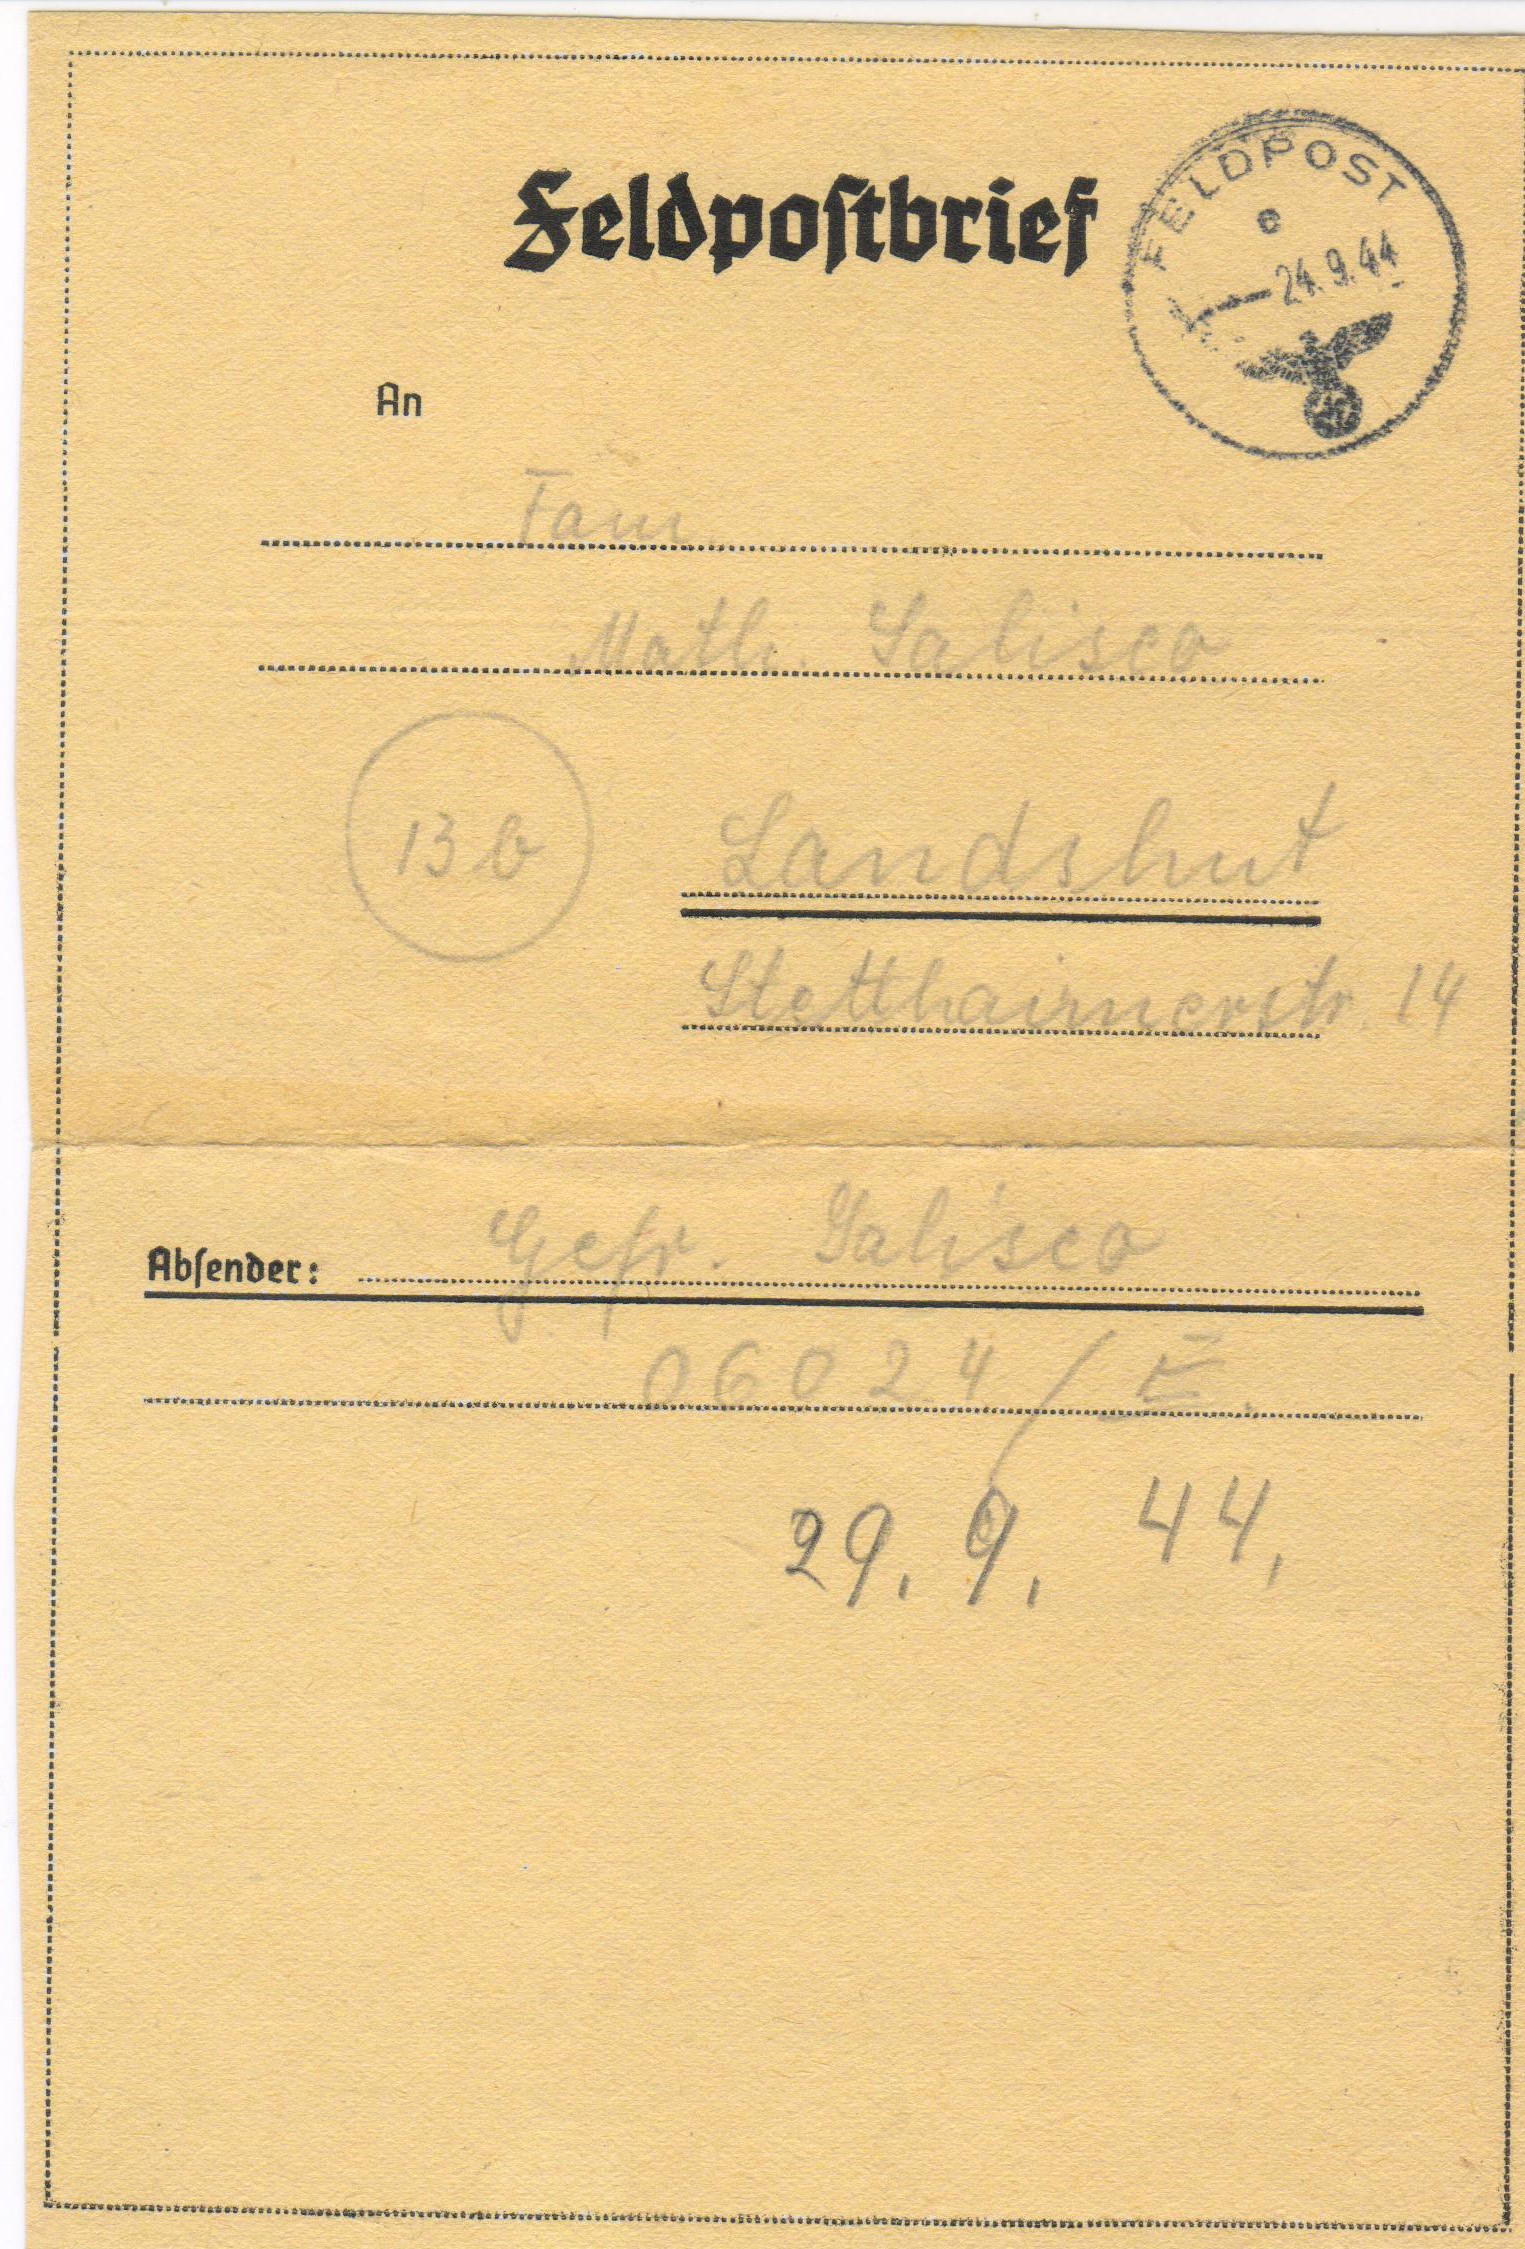 Feldpostbrief
FELDPOST
e
24.9.44
An
Fam.
Math. Salisco
13b
Landshut
Stetthaimerstr. 14
Absender: Gefr. Salisco
06024 / E.
29. 9. 44.